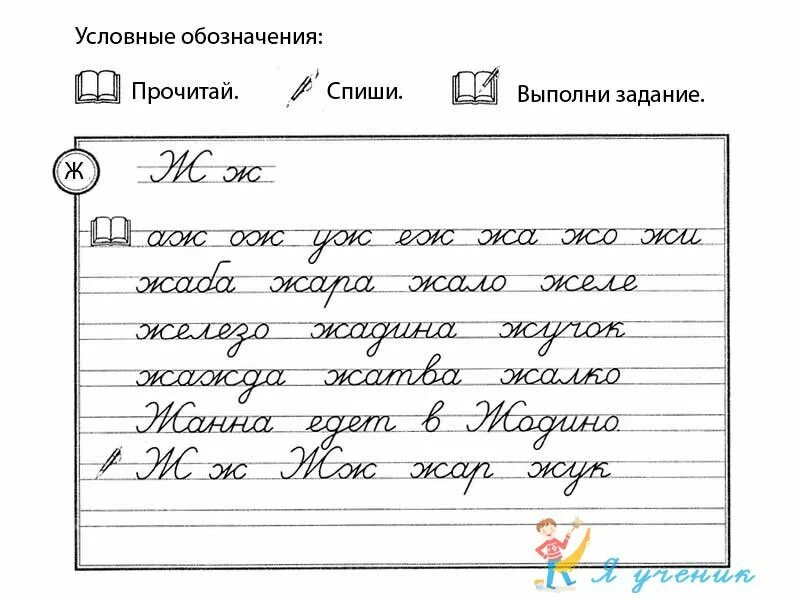 Условные обозначения:
Прочитай. Спиши. Выполни задание.
Ж
Ж ж
аж ож уж еж жа жо жи
жаба жара жало желе
железо жадина жучок
жажда жатва жалко
Жанна едет в Жодино.
Ж ж Жж жар жук
Я ученик